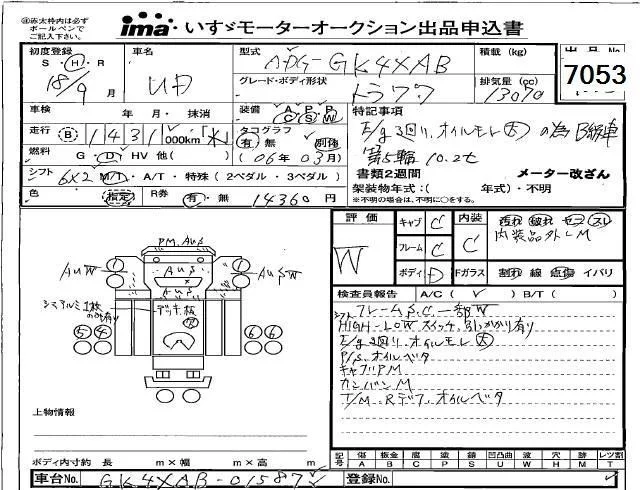 ㊟赤太枠内は必ず
ボールペンで
ご記入下さい。
ima いすゞモーターオークション出品申込書
初度登録 S・H・R 18/9 月
車名 UD
型式 ADG-GK4XAB
積載 (kg)
出品No. 7053
グレード・ボディ形状 トラクタ
排気量 (cc) 13070
車検 年・月・抹消
装備 A/C P/S P/W
特記事項
走行 B 1431 000km 「水」
タコグラフ 有・無 別体
E/g 3回り、オイルモレ 大 の為 B級車
燃料 G・D・HV 他( ) (06年03月)
第5輪 10.2t
シフト 6X2 M/T・A/T・特殊 (2ペダル・3ペダル)
書類2週間 メーター改ざん
架装物年式:( 年式)・不明
※不明の場合は、不明に○をする。
色 指定 R券 有・無 14360 円
評価 W
キャブ C
フレーム C
ボディ D
内装 C
Fガラス
汚れ 破れ コゲ スレ
内装品外し M
割れ 線 点傷 イバリ
検査員報告 A/C ( ✓ ) B/T ( )
フレーム S.C 一部W
HIGH-LOWスイッチ、引っかかり有り
E/g 3回り、オイルモレ 大
P/S オイルベタ
キャブPM
カンバンM
T/M、Rデフ、オイルベタ
PM、AUS
AUW
AUS
AUSW
AUS
デッキ板
1 1
5 4 6 6
上物情報
ボディ内寸約 長 m×幅 m×高 m
記号 傷 A 板金 B 腐 C 塗 P 錆 S 凹凸曲 U 波 W 穴 H 跡 M レツ割 T
車台No. GK4XAB-01587
登録No.